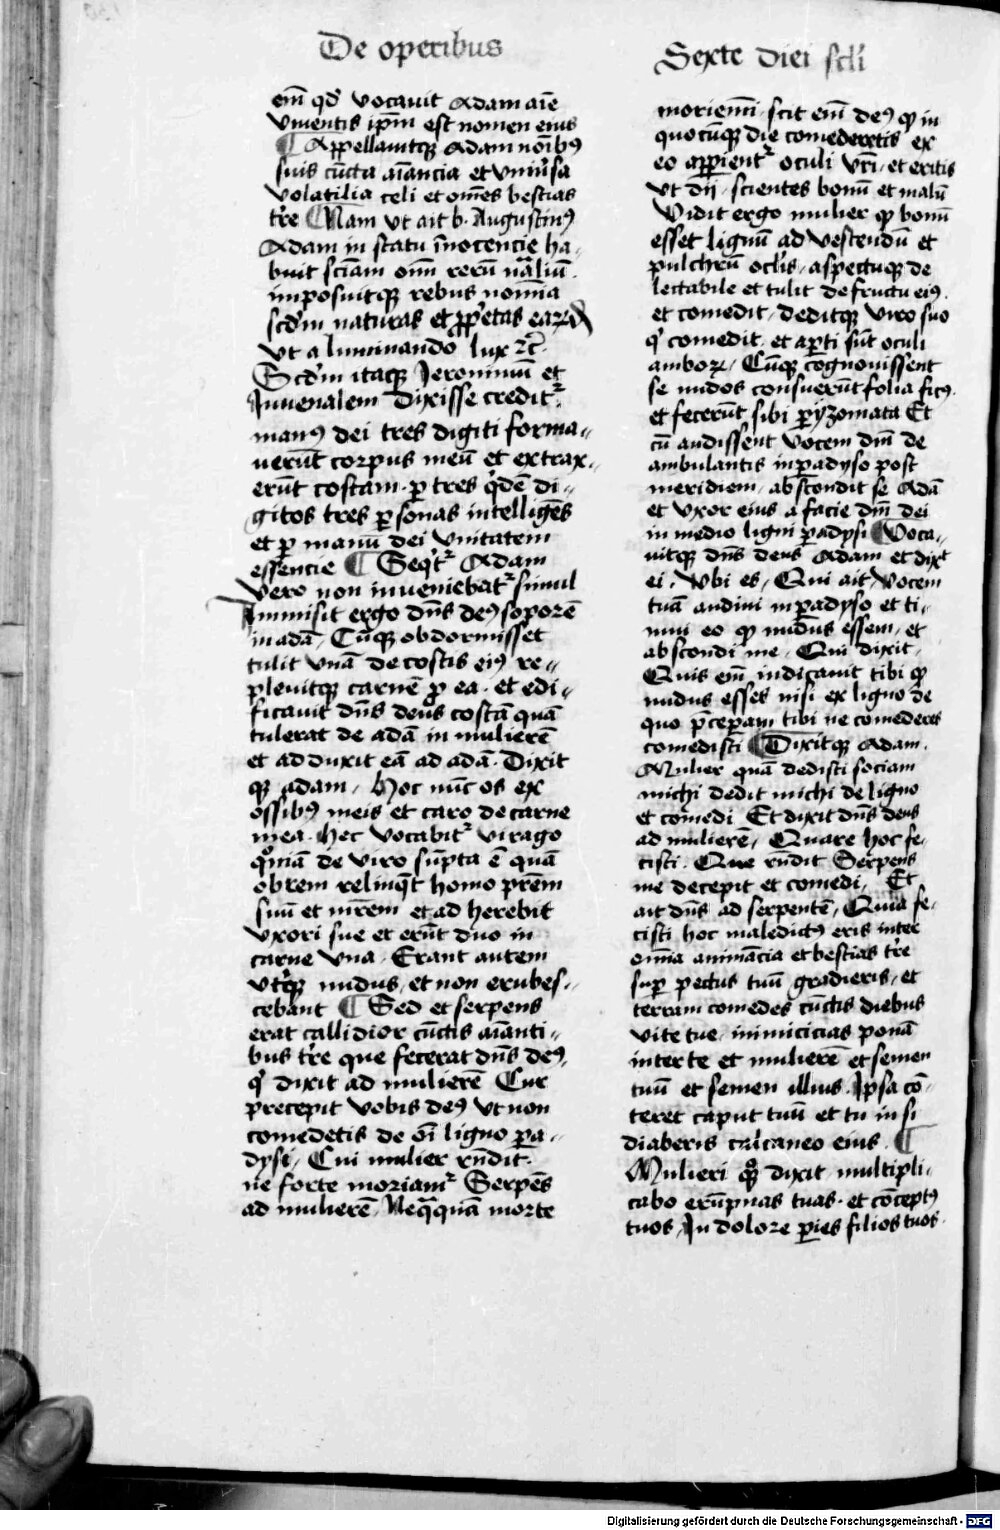 De operibus
em̄ qd̛ vocauit Adam aīe
viuentis ip̄m est nomen eius
¶ Appellauitq; Adam noīb9
suis cūcta aīancia et vniūsa
volatilia celi et om̄es bestias
tr̄e ¶ Nam vt ait b. Augustin9
Adam in statu īnocencie ha-
buit sciam om̄ rerū nāliū.
imposuitq; rebus nomīa
scd̛m naturas et ꝓp̄etas eaꝝ
vt a luminando lux ⁊c̄.
Scd̛m itaq; Jeronimū et
Juuenalem dixisse credit᷑.
man9 dei tres digiti forma-
uerūt corpus meū et extrax-
erūt costam. ꝑ tres q̄dē di-
gitos tres ꝑsonas intelligēs
et ꝑ manū dei vnitatem
essencie ¶ Seq̄t᷑ Adam
vero non inueniebat᷑ simul
Immisit ergo dn̄s de9 soporē
in adā / Cūq; obdormisset
tulit vnā de costis ei9 re-
pleuitq; carnē ꝓ ea. et edi-
ficauit dn̄s deus costā quā
tulerat de adā in mulierē
et adduxit eā ad adā. Dixit
q; adam / Hoc nūc os ex
ossib9 meis et caro de carne
mea. hec vocabit᷑ virago
qm̄ de viro sūpta ē quā
obrem relinq̄t homo pr̄em
suū et mr̄em et ad herebit
vxori sue et erūt duo in
carne vna. Erant autem
vtq; nudus, et non erubes-
cebant ¶ Sed et serpens
erat callidior cūctis aīanti-
bus tr̄e que fecerat dn̄s de9,
q̛ dixit ad mulierē Cur
precepit vobis de9 vt non
comedetis de oī ligno ꝑa-
dysi / Cui mulier rn̄dit.
ne forte moriam᷑ Serpēs
ad mulierē / Neq̄quā morte
Sexte diei scl̄i
moriem̄i. scit em̄ de9 ꝙ in
quocūq; die comederetis ex
eo apꝑient᷑ oculi vr̄i. et eritis
vt dii. scientes bonū et malū
Vidit ergo mulier ꝙ bonū
esset lignū ad vescendū et
pulchrū oclis. aspectuq; de
lectabile et tulit de fructu ei9.
et comedit. deditq; viro suo
q̛ comedit. et aꝑti sūt oculi
amboꝝ / Cūq; cognouissent
se nudos consuerūt folia fic9.
et fecerūt sibi ꝑyzomata Et
cū audissent vocem dn̄i de
ambulantis in ꝑadyso post
meridiem. abscondit se Adā
et vxor eius a facie dn̄i dei
in medio ligni ꝑadysi ¶ Voca-
uitq; dn̄s deus Adam et dixt
ei. vbi es / Qui ait / Vocem
tuā audiui in ꝑadyso et ti-
mui eo ꝙ nudus essem. et
abscondi me. Qui dixit.
Quis em̄ indicauit tibi ꝙ
nudus esses nisi ex ligno de
quo p̄ceꝑam tibi ne comederes
comedisti ¶ Dixitq; Adam.
Mulier quā dedisti sociam
michi dedit michi de ligno
et comedi Et dixit dn̄s deus
ad mulierē. Quare hoc fe-
cisti. Que rn̄dit Serpens
me decepit et comedi, Et
ait dn̄s ad serpentē, Quia fe-
cisti hoc maledict9 eris inter
omīa animācia et bestias tr̄e
suꝑ pectus tuū gradieris. et
terram comedes cūctis diebus
vite tue. inimicicias ponā
inter te et mulierē et semen
tuū et semen illius. Ipsa cō-
teret caput tuū et tu insi
diaberis calcaneo eius. ¶
Mulieri qꝫ dixit. multipli-
cabo erūpnas tuas. et cōcept9
tuos / In dolore ꝑies filios tuos.
Digitalisierung gefördert durch die Deutsche Forschungsgemeinschaft - DFG